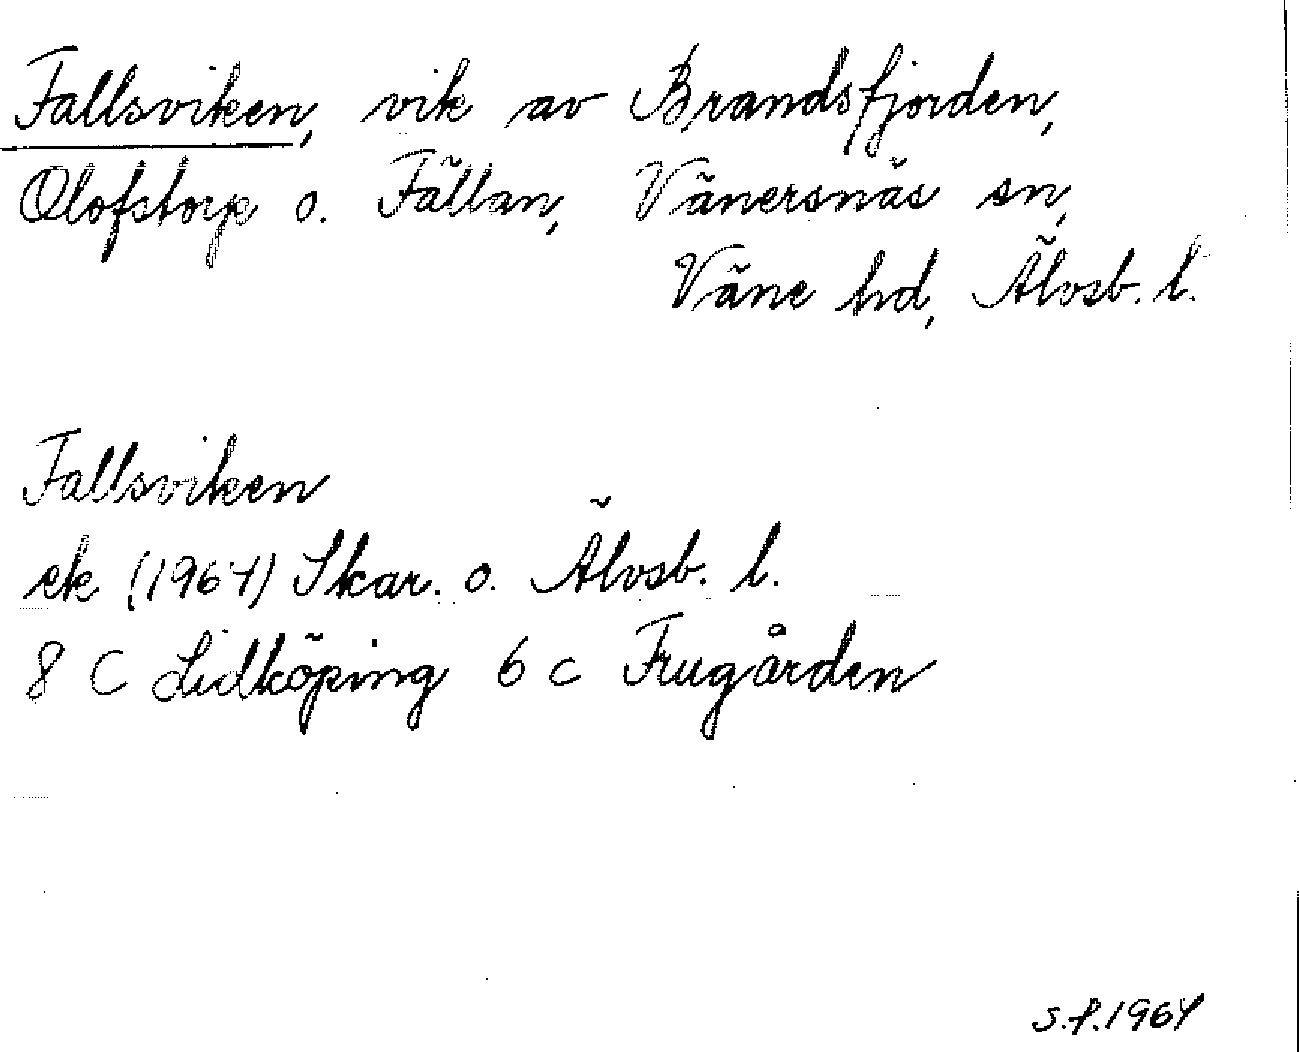 Fallsviken, vik av Brandsfjorden,
Olofstorp o. Fällan, Vänersnäs sn,
Väne hd, Älvsb. l.
Fallsviken
ek (1961) Skar. o. Älvsb. l.
8 C Lidköping 6 c Frugården
S.F. 1964